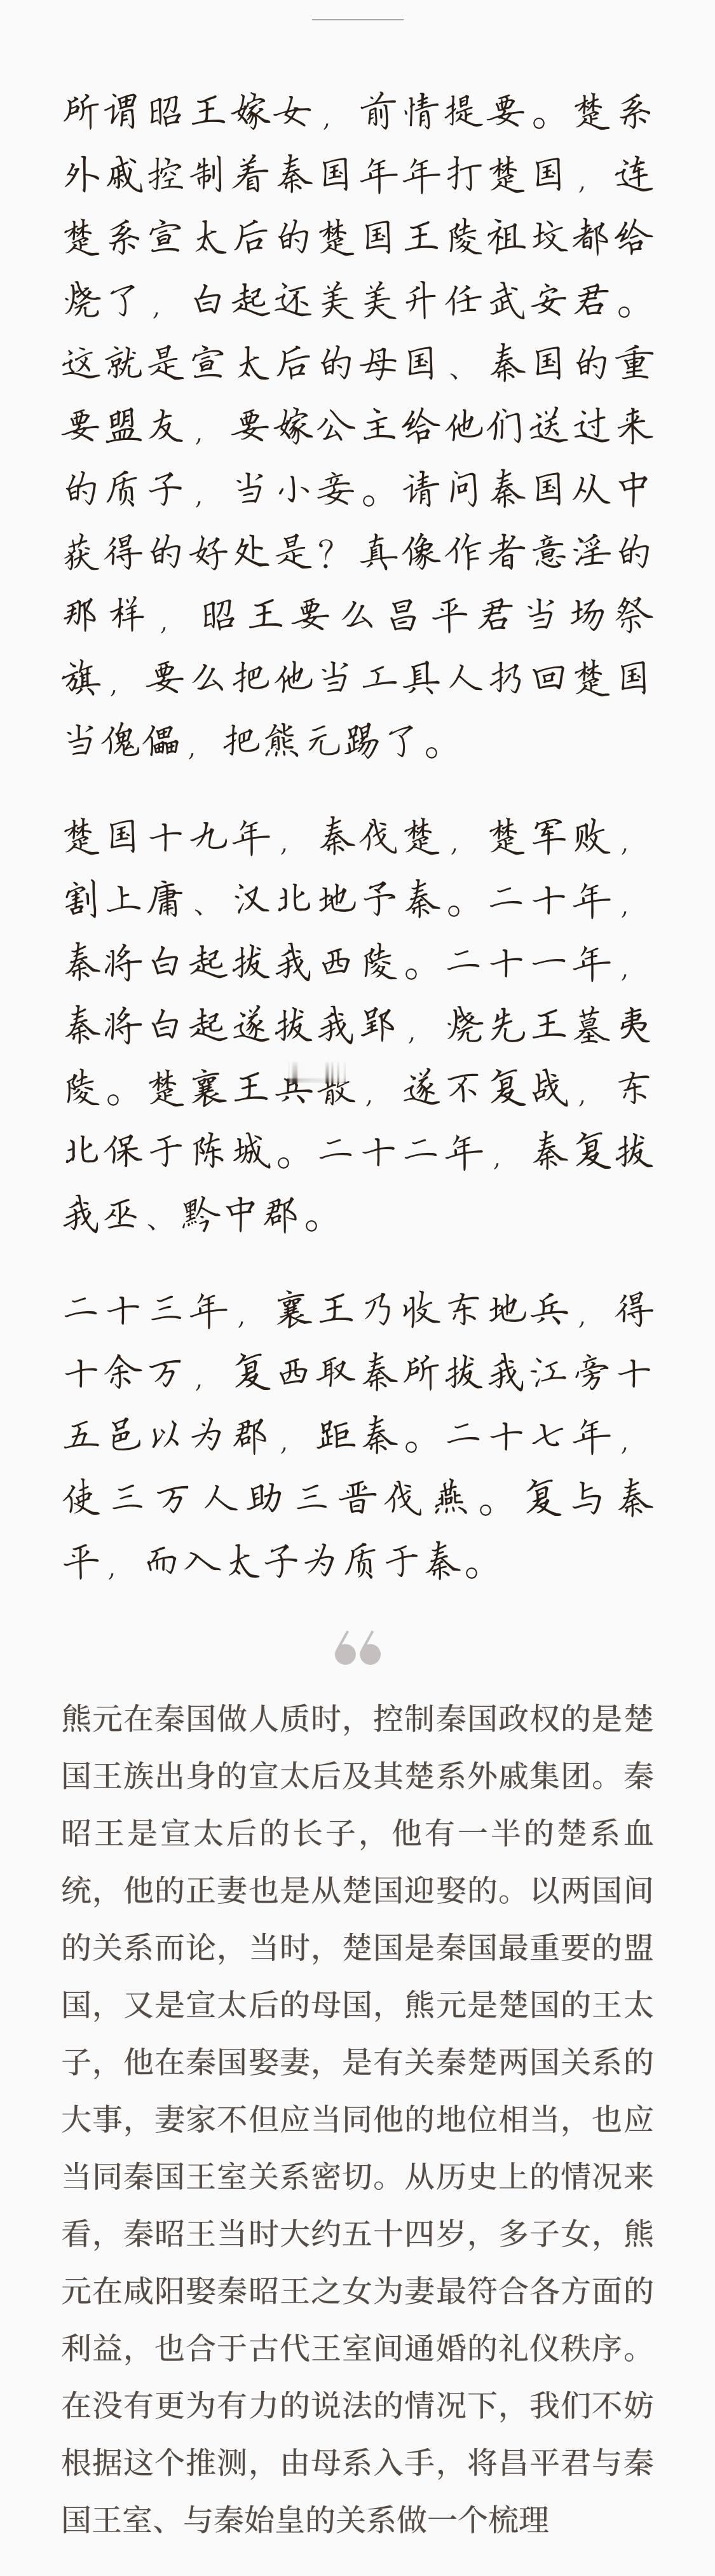 所谓昭王嫁女，前情提要。楚系
外戚控制着秦国年年打楚国，连
楚系宣太后的楚国王陵祖坟都给
烧了，白起还美美升任武安君。
这就是宣太后的母国、秦国的重
要盟友，要嫁公主给他们送过来
的质子，当小妾。请问秦国从中
获得的好处是？真像作者意淫的
那样，昭王要么昌平君当场祭
旗，要么把他当工具人扔回楚国
当傀儡，把熊元踢了。
楚国十九年，秦伐楚，楚军败，
割上庸、汉北地予秦。二十年，
秦将白起拔我西陵。二十一年，
秦将白起遂拔我郢，烧先王墓夷
陵。楚襄王兵散，遂不复战，东
北保于陈城。二十二年，秦复拔
我巫、黔中郡。
二十三年，襄王乃收东地兵，得
十余万，复西取秦所拔我江旁十
五邑以为郡，距秦。二十七年，
使三万人助三晋伐燕。复与秦
平，而入太子为质于秦。
熊元在秦国做人质时，控制秦国政权的是楚
国王族出身的宣太后及其楚系外戚集团。秦
昭王是宣太后的长子，他有一半的楚系血
统，他的正妻也是从楚国迎娶的。以两国间
的关系而论，当时，楚国是秦国最重要的盟
国，又是宣太后的母国，熊元是楚国的王太
子，他在秦国娶妻，是有关秦楚两国关系的
大事，妻家不但应当同他的地位相当，也应
当同秦国王室关系密切。从历史上的情况来
看，秦昭王当时大约五十四岁，多子女，熊
元在咸阳娶秦昭王之女为妻最符合各方面的
利益，也合于古代王室间通婚的礼仪秩序。
在没有更为有力的说法的情况下，我们不妨
根据这个推测，由母系入手，将昌平君与秦
国王室、与秦始皇的关系做一个梳理